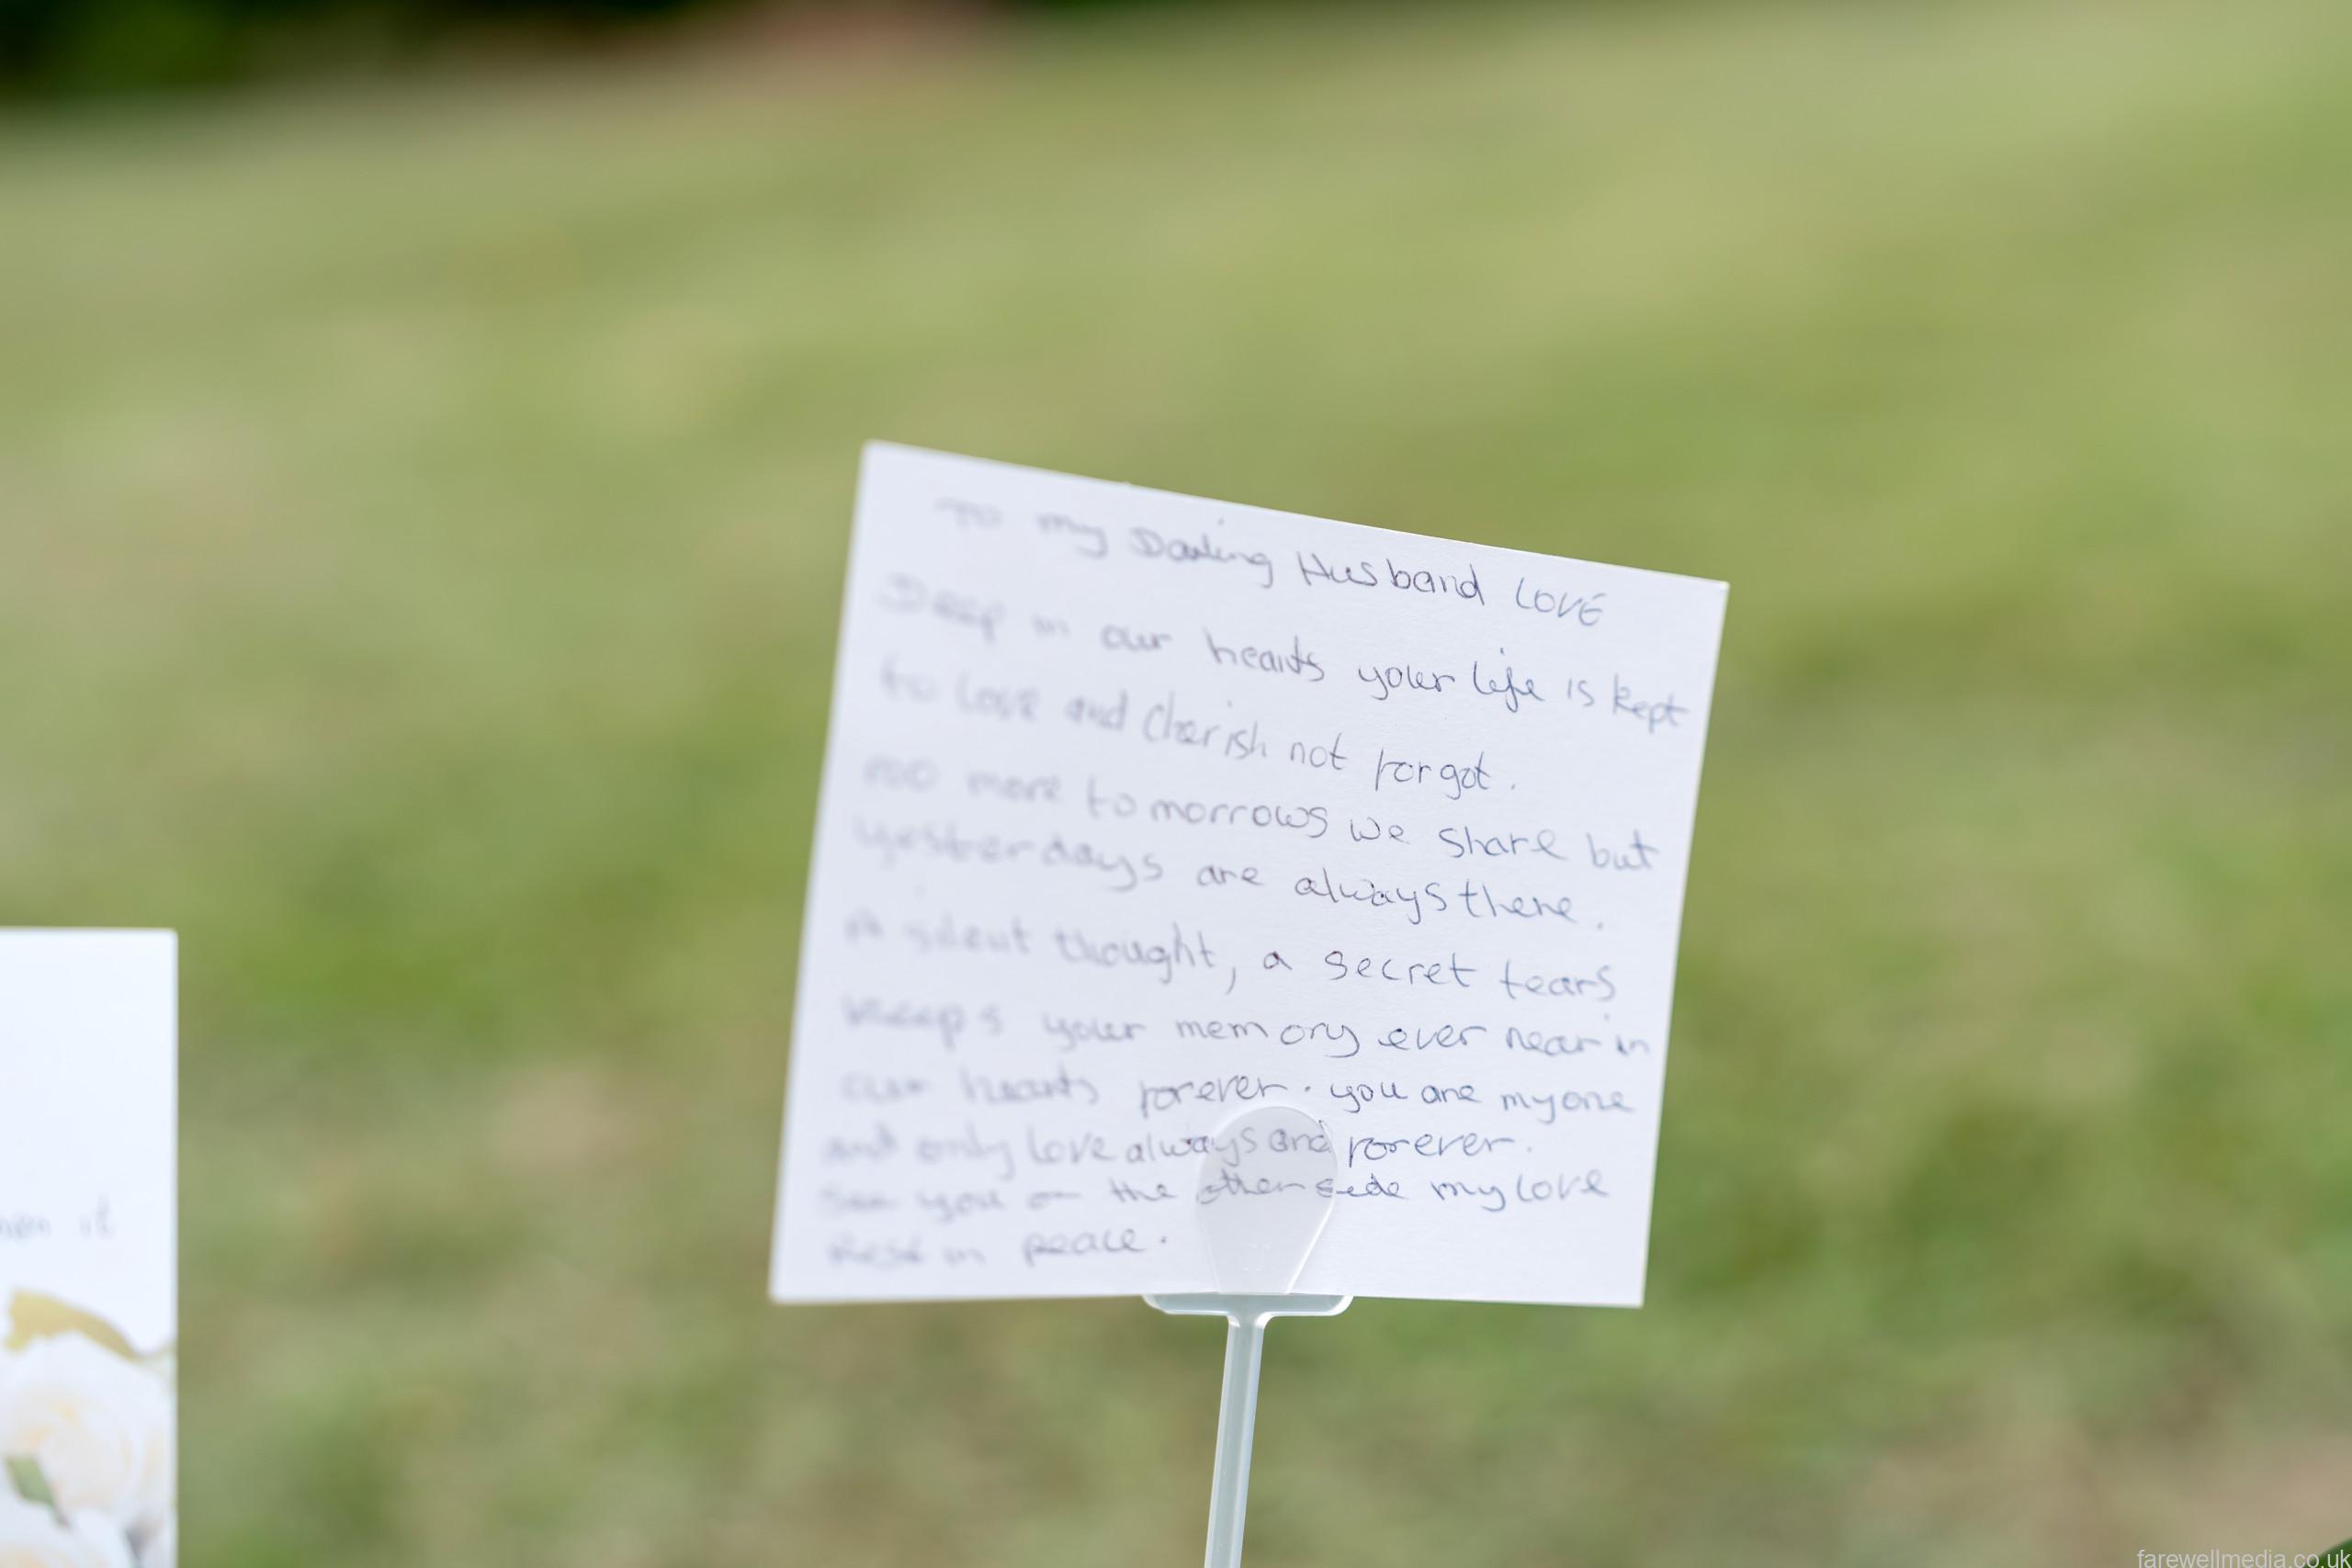 To my Darling Husband LOVE
Deep in our hearts your life is kept
to love and Cherish not forgot.
no more tomorrows we share but
yesterdays are always there.
A silent thought, a secret tears
keeps your memory ever near in
our hearts forever. you are my one
and only love always and forever.
See you on the other side my love
Rest in peace.
it
farewellmedia.co.uk